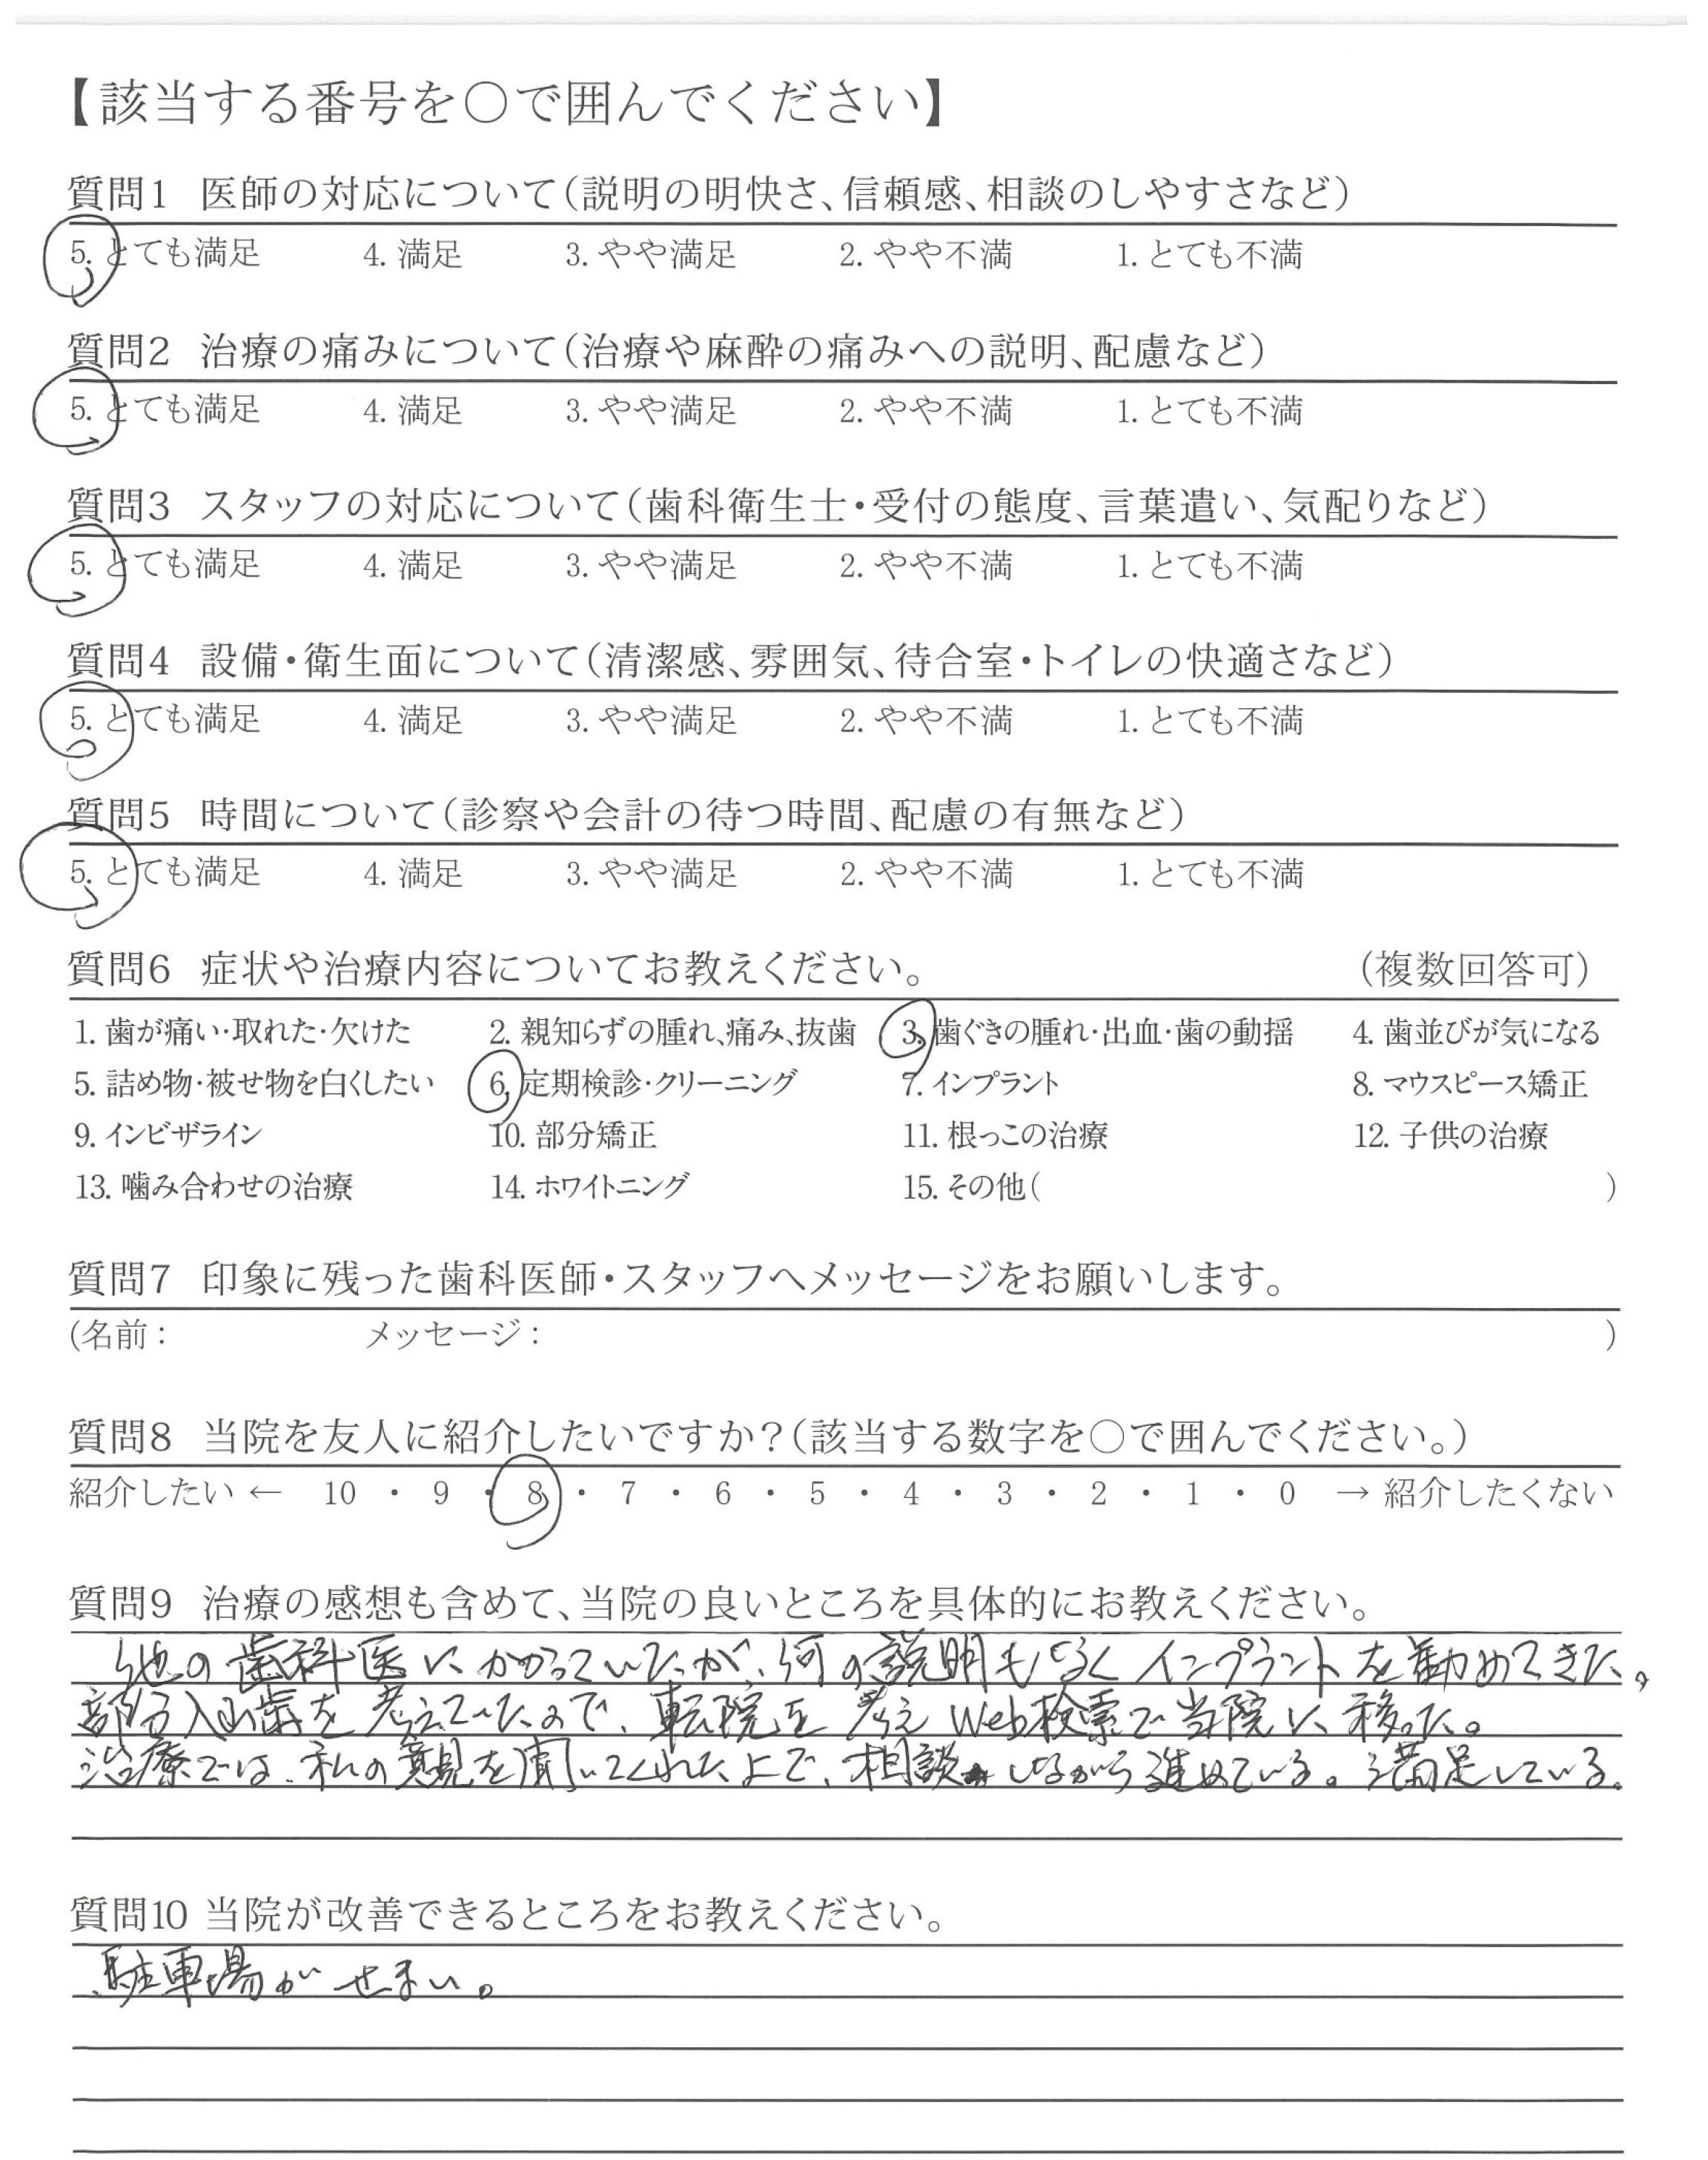 【該当する番号を〇で囲んでください】
質問1 医師の対応について（説明の明快さ、信頼感、相談のしやすさなど）
5. とても満足 4. 満足 3. やや満足 2. やや不満 1. とても不満
質問2 治療の痛みについて（治療や麻酔の痛みへの説明、配慮など）
5. とても満足 4. 満足 3. やや満足 2. やや不満 1. とても不満
質問3 スタッフの対応について（歯科衛生士・受付の態度、言葉遣い、気配りなど）
5. とても満足 4. 満足 3. やや満足 2. やや不満 1. とても不満
質問4 設備・衛生面について（清潔感、雰囲気、待合室・トイレの快適さなど）
5. とても満足 4. 満足 3. やや満足 2. やや不満 1. とても不満
質問5 時間について（診察や会計の待つ時間、配慮の有無など）
5. とても満足 4. 満足 3. やや満足 2. やや不満 1. とても不満
質問6 症状や治療内容についてお教えください。 （複数回答可）
1. 歯が痛い・取れた・欠けた 2. 親知らずの腫れ、痛み、抜歯 3. 歯ぐきの腫れ・出血・歯の動揺 4. 歯並びが気になる
5. 詰め物・被せ物を白くしたい 6. 定期検診・クリーニング 7. インプラント 8. マウスピース矯正
9. インビザライン 10. 部分矯正 11. 根っこの治療 12. 子供の治療
13. 噛み合わせの治療 14. ホワイトニング 15. その他（ ）
質問7 印象に残った歯科医師・スタッフへメッセージをお願いします。
(名前： メッセージ： )
質問8 当院を友人に紹介したいですか？（該当する数字を〇で囲んでください。）
紹介したい ← 10 ・ 9 ・ 8 ・ 7 ・ 6 ・ 5 ・ 4 ・ 3 ・ 2 ・ 1 ・ 0 → 紹介したくない
質問9 治療の感想も含めて、当院の良いところを具体的にお教えください。
他の歯科医にかかっていたが、何の説明もなくインプラントを勧めてきた。
部分入歯を考えていたので、転院を考えWeb検索で当院に移った。
治療では、私の意見を聞いてくれた上で、相談しながら進めている。満足している。
質問10 当院が改善できるところをお教えください。
駐車場がせまい。